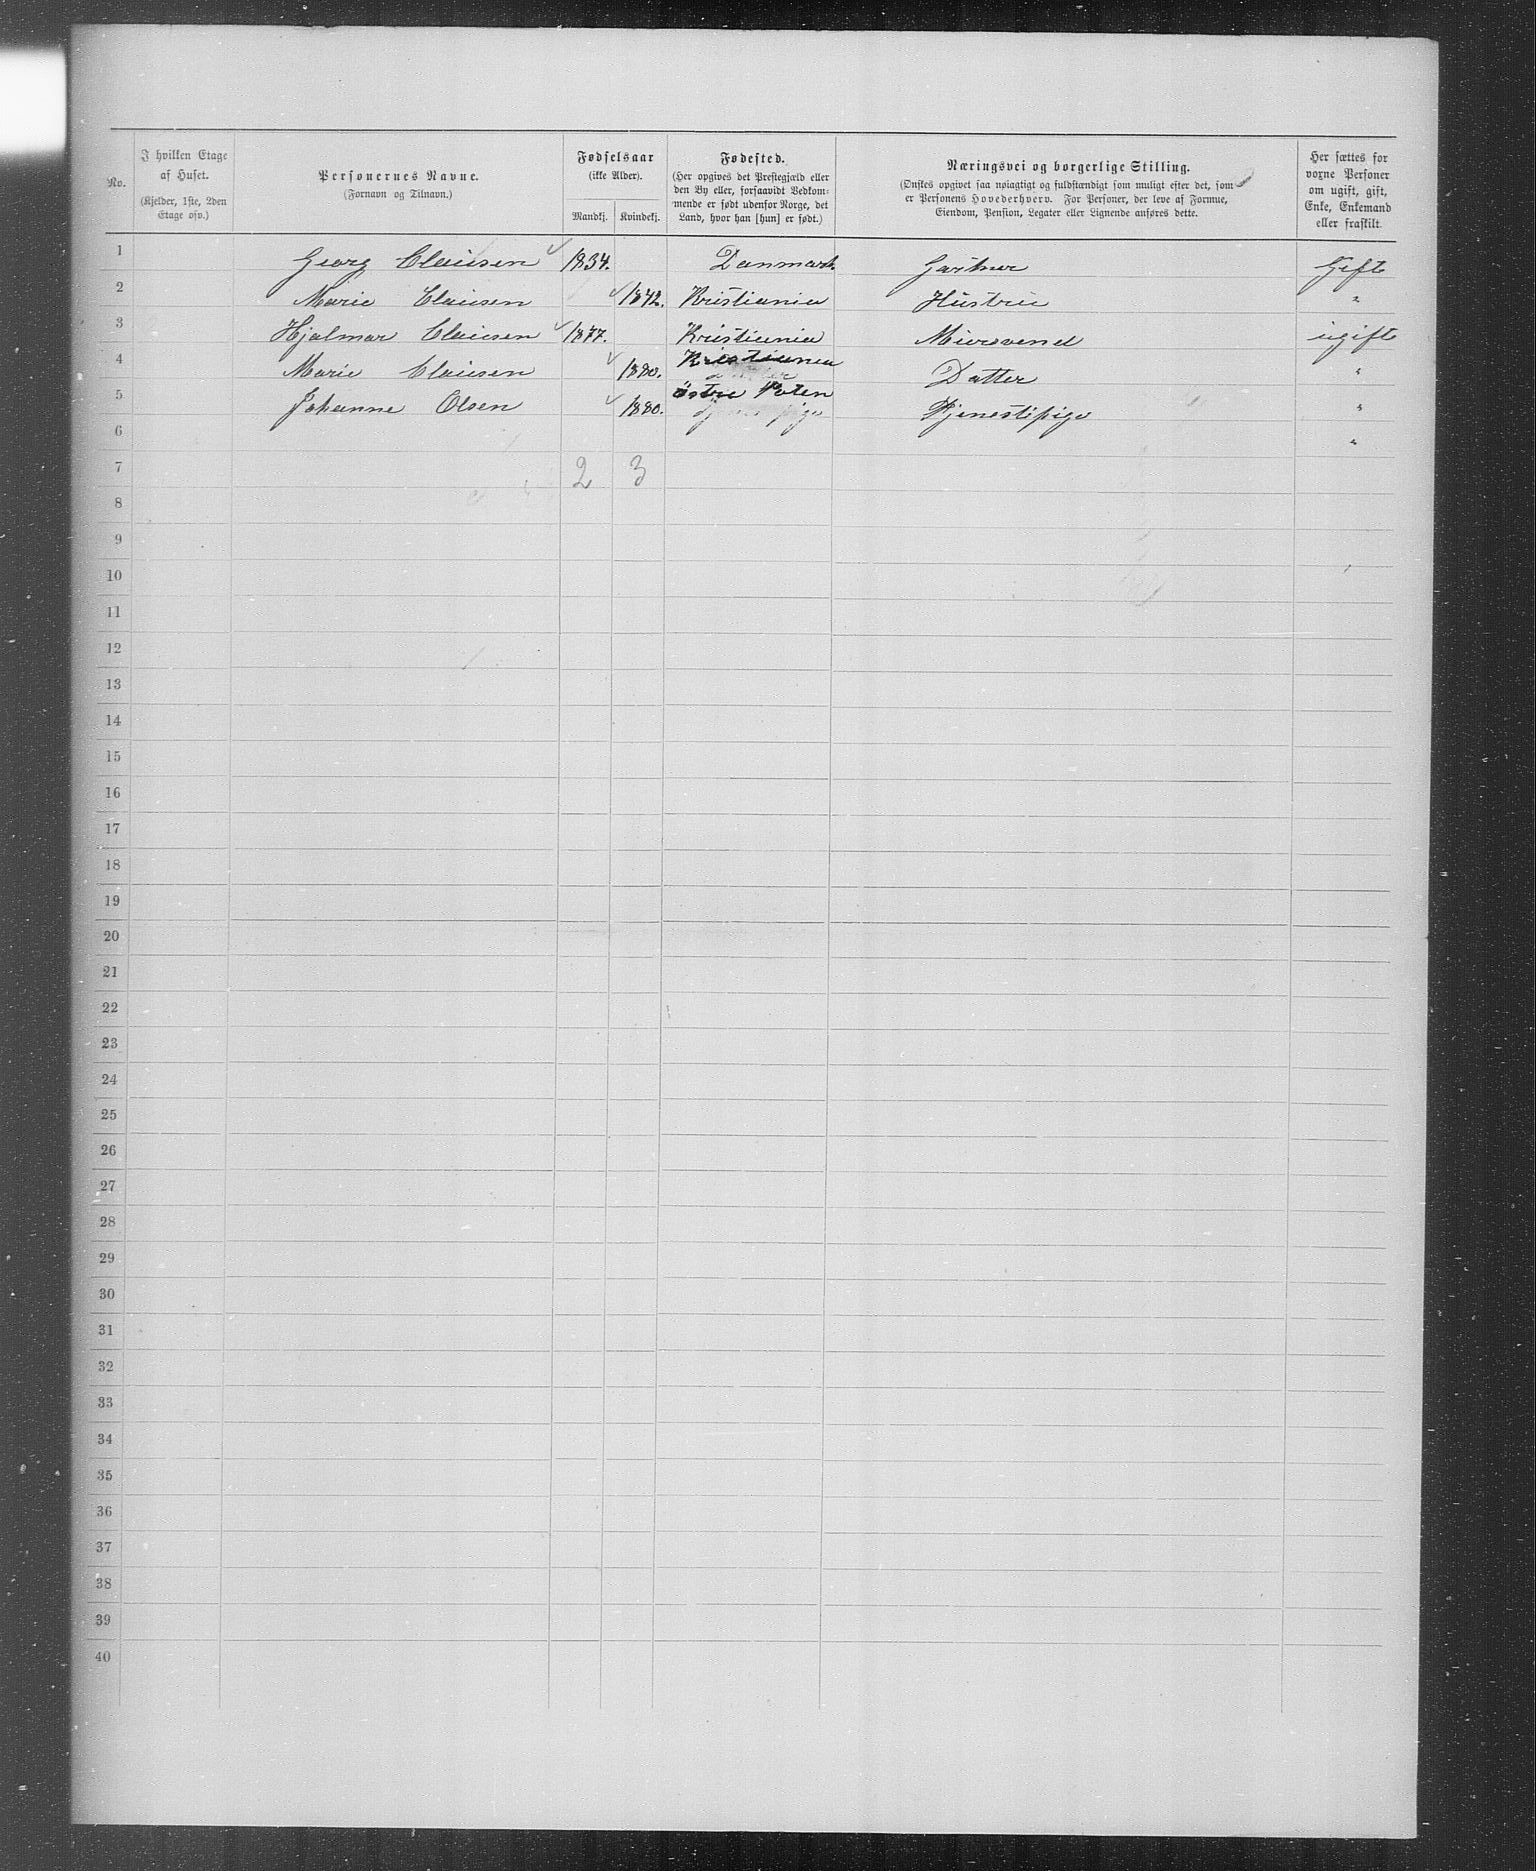 No.
I hvilken Etage af Huset. (Kjelder, 1ste, 2den Etage osv.)
Personernes Navne. (Fornavn og Tilnavn.)
Fødselsaar (ikke Alder).
Mandkj. Kvindekj.
Fødested. (Her opgives det Prestegjæld eller den By eller, forsaavidt Vedkommende er født udenfor Norge, det Land, hvor han [hun] er født.)
Næringsvei og borgerlige Stilling. (Ønskes opgivet saa nøiagtigt og fuldstændigt som muligt efter det, som er Personens Hovederhverv. For Personer, der leve af Formue, Eiendom, Pension, Legater eller Lignende anføres dette.
Her sættes for voxne Personer om ugift, gift, Enke, Enkemand eller fraskilt.
1 Georg Clausen 1834. Danmark. Gartner Gift
2 Marie Clausen 1842. Kristiania Hustru "
3 Hjalmar Clausen 1877. Kristiania Mursvend ugift
4 Marie Clausen 1880. Kristiania Datter "
5 Johanne Olsen 1880. Østre Toten Tjenestepige "
6 "
7 2 3
8
9
10
11
12
13
14
15
16
17
18
19
20
21
22
23
24
25
26
27
28
29
30
31
32
33
34
35
36
37
38
39
40